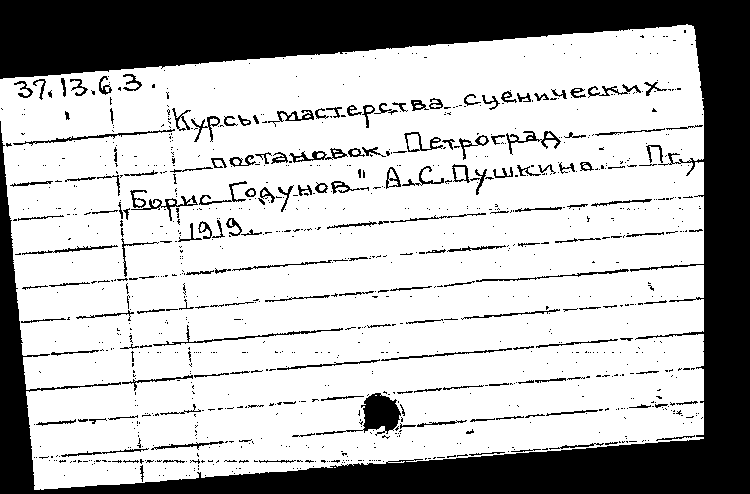 37.13.6.3.
Курсы мастерства сценических
постановок. Петроград.
„Борис Годунов" А.С.Пушкина. Пг.,
1919.